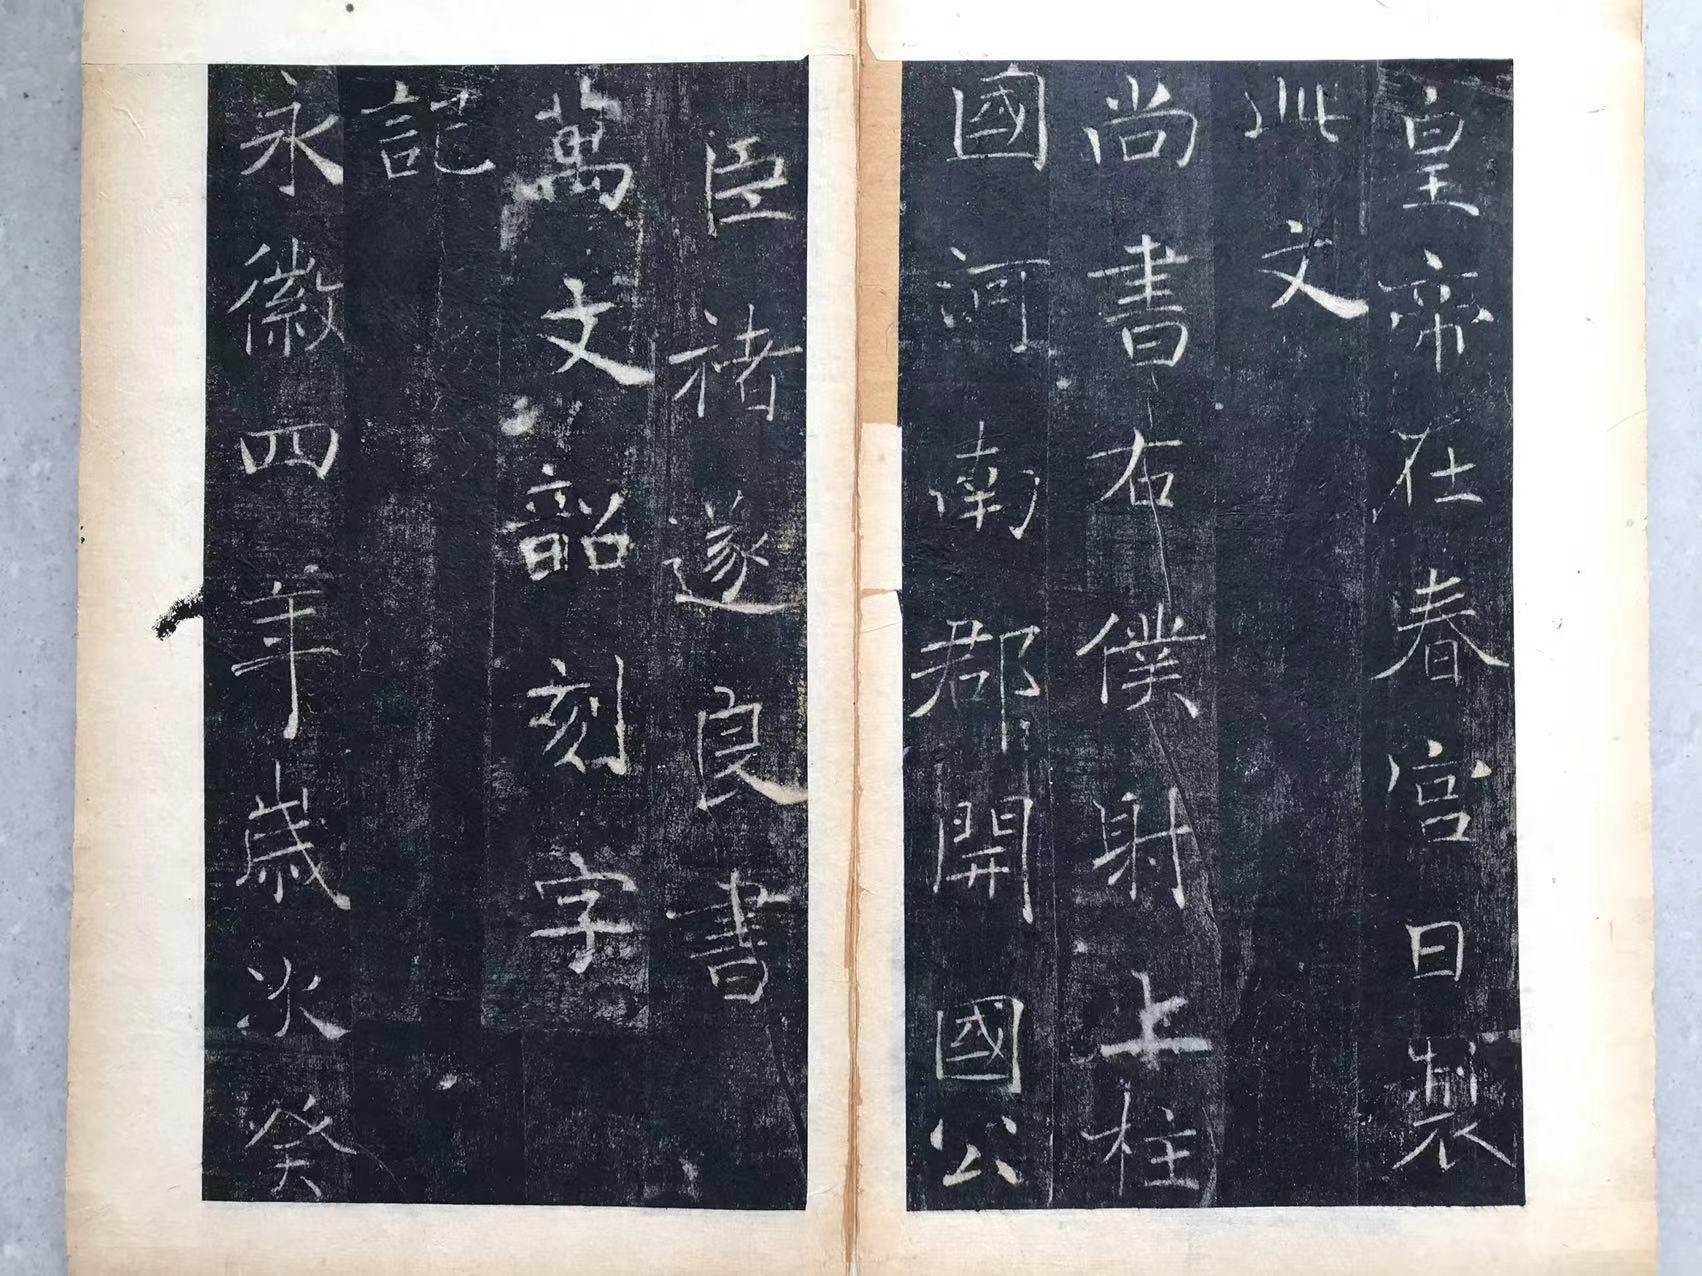 皇帝在春宫日製
此文
尚書右僕射上柱
國河南郡開國公
臣褚遂良書
萬文韶刻字
記
永徽四年歲次癸